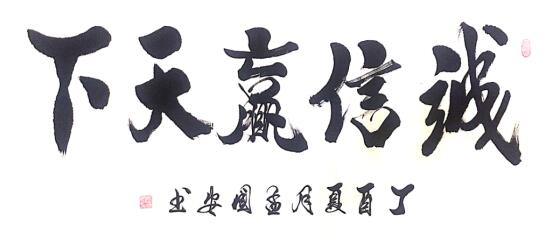 诚信赢天下
丁酉夏月孟国安书